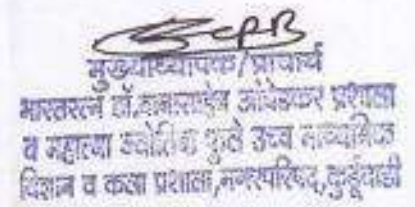 मुख्याध्यापक/प्राचार्य
भारतरत्न डॉ.बाबासाहेब आंबेडकर प्रशाला
व महात्मा ज्योतिबा फुले उच्च माध्यमिक
विज्ञान व कला प्रशाला,नगरपरिषद,कुर्डुवाडी